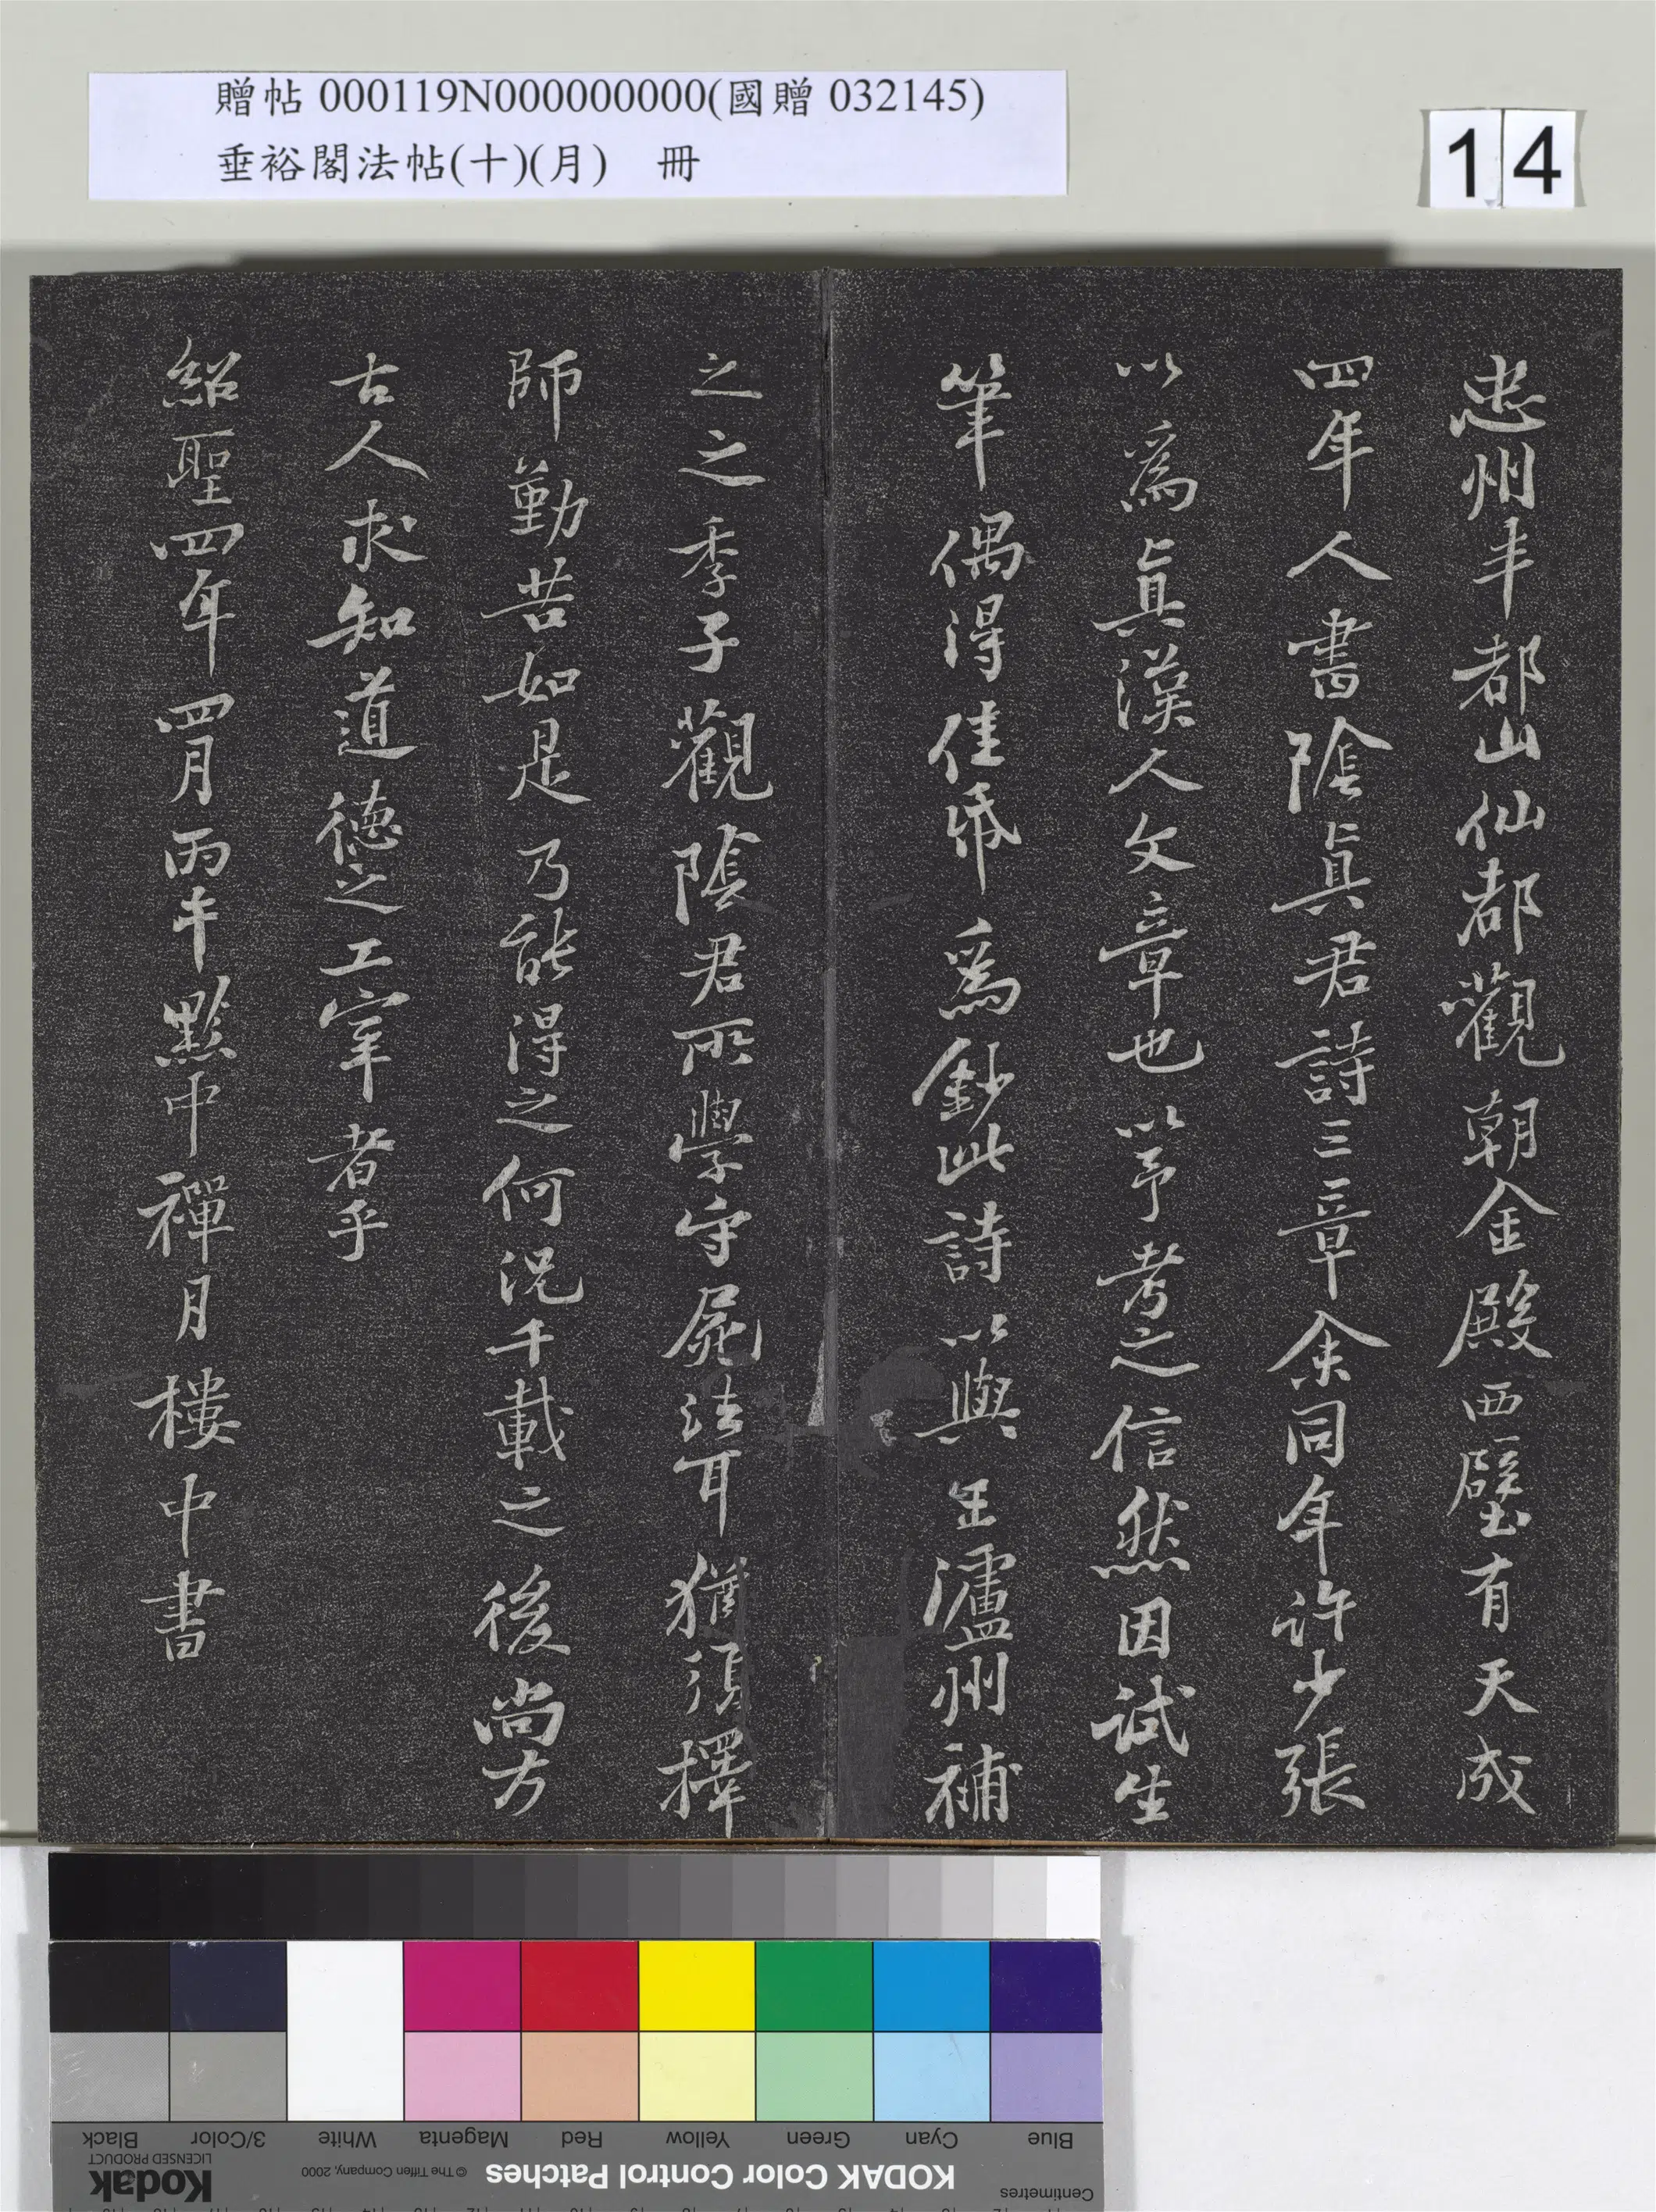 贈帖 000119N000000000(國贈 032145)
垂裕閣法帖(十)(月) 冊
14
忠州丰都山仙都觀朝金殿西壁有天成
四年人書陰眞君詩三章余同年許少張
以爲眞漢人文章也以予考之信然因試生
筆偶得佳帋爲鈔此詩以與王瀘州補
之之季子觀陰君所學守屍法耳猶須擇
師勤苦如是乃能得之何況千載之後尚方
古人求知道德之工宰者乎
紹聖四年四月丙午黔中禪月樓中書
Blue Cyan Green Yellow Red Magenta White 3/Color Black
Centimetres KODAK Color Control Patches © The Tiffen Company, 2000 Kodak
LICENSED PRODUCT